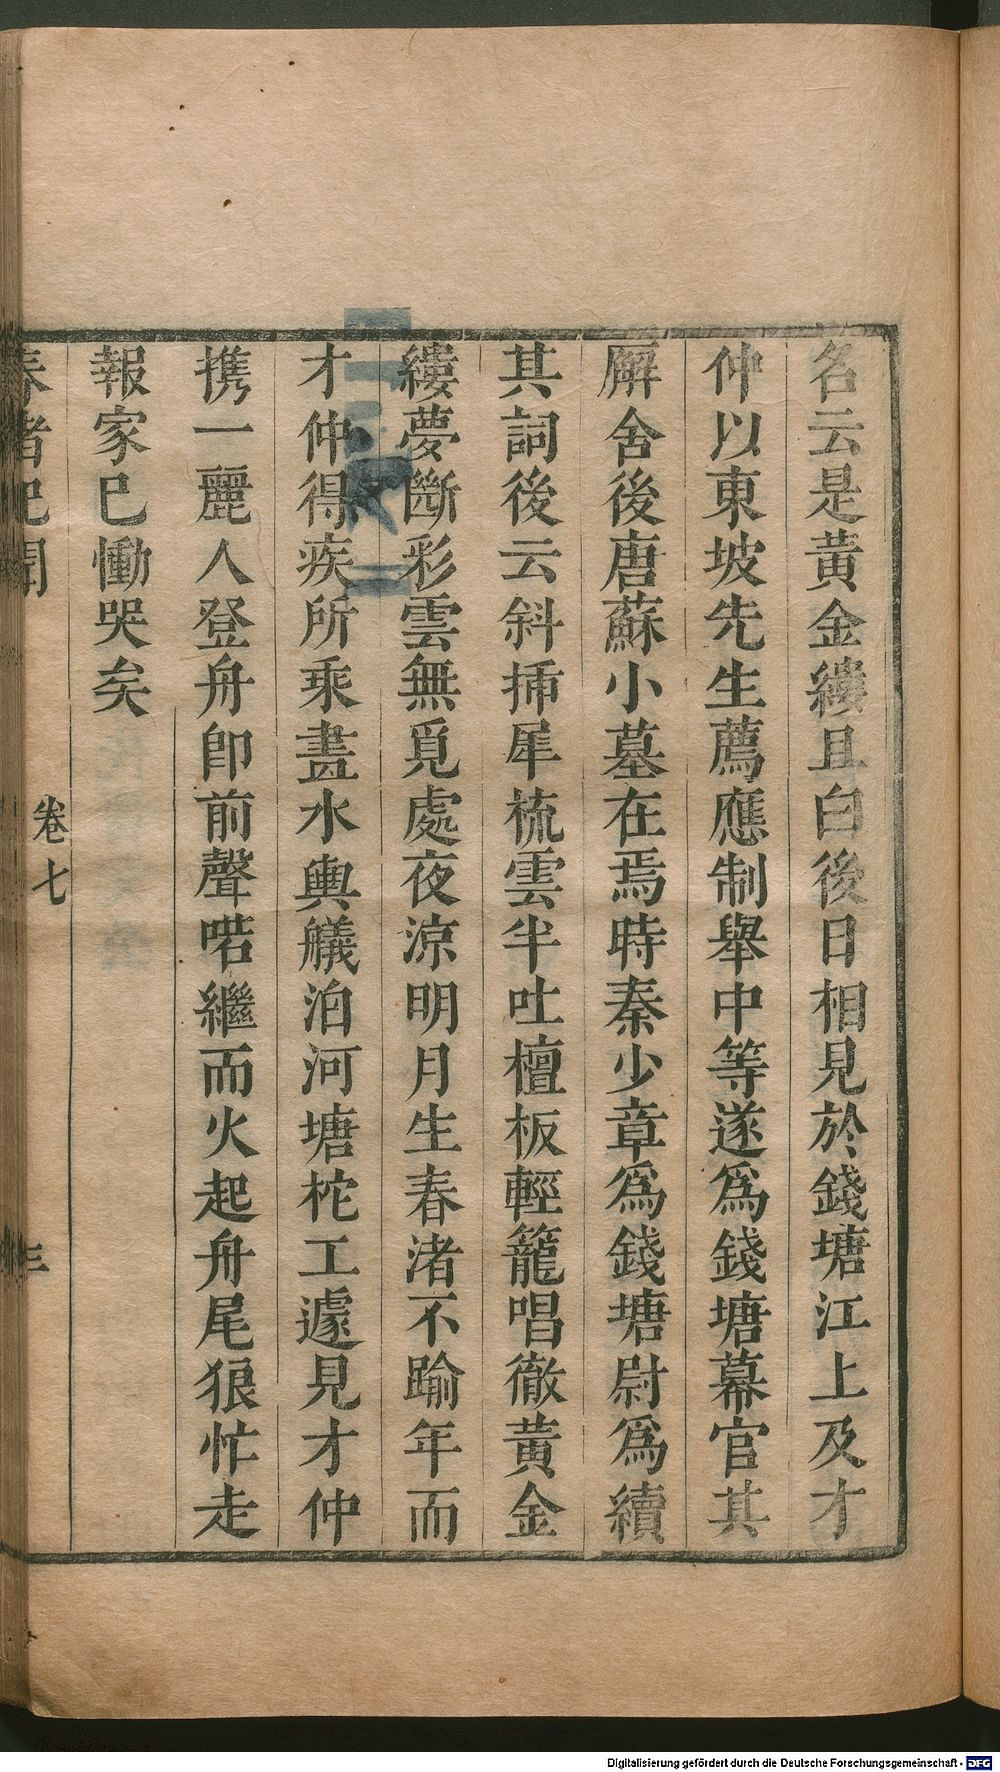 名云是黃金縷且白後日相見於錢塘江上及才
仲以東坡先生薦應制舉中等遂爲錢塘幕官其
廨舍後唐蘇小墓在焉時秦少章爲錢塘尉爲續
其詞後云斜揷犀梳雲半吐檀板輕籠唱徹黃金
縷夢斷彩雲無覓處夜涼明月生春渚不踰年而
才仲得疾所乘畫水輿艤泊河塘柁工遽見才仲
携一麗人登舟卽前聲喏繼而火起舟尾狼忙走
報家已慟哭矣
春渚記聞
卷七
三
Digitalisierung gefördert durch die Deutsche Forschungsgemeinschaft - DFG